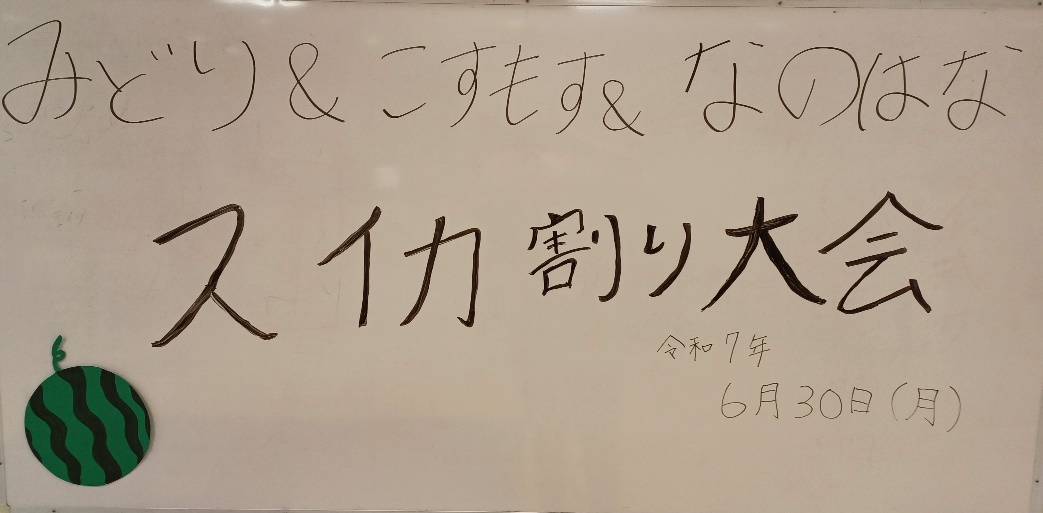 みどり&こすもす&なのはな
スイカ割り大会
令和7年
6月30日(月)